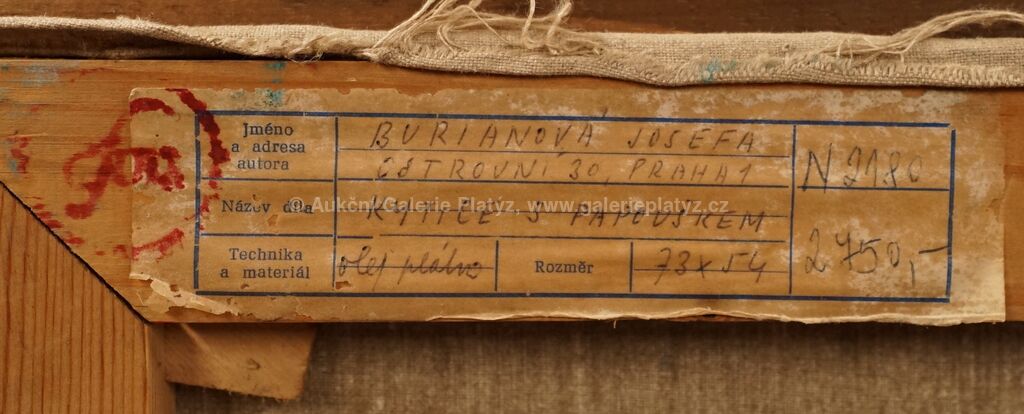 Jméno
a adresa
autora
BURIANOVÁ JOSEFA
OSTROVNÍ 30, PRAHA 1
N 2180
Název díla
KYTICE S PAPOUŠKEM
© Aukční Galerie Platýz, www.galerieplatyz.cz
2750,-
Technika
a materiál
olej plátno
Rozměr
73 x 54